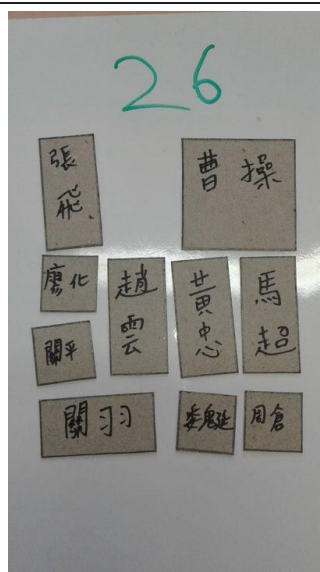 26
張飛
曹操
廖化
趙雲
黃忠
馬超
關平
關羽
魏延
周倉